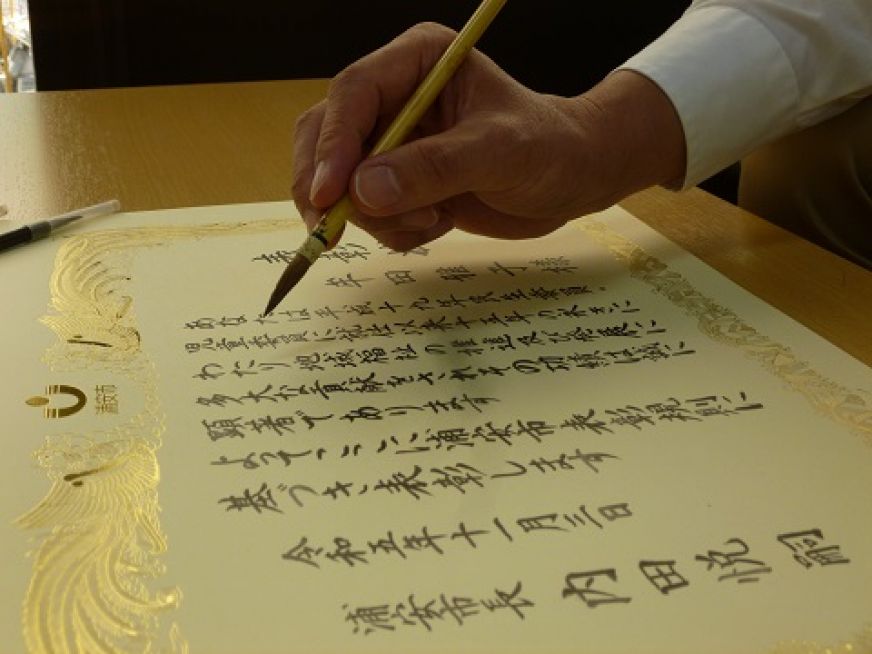 表彰状
牟田 雅子様
あなたは平成十九年民生委員・
児童委員に就任以来十五年の永きに
わたり地域福祉の推進及び発展に
多大な貢献をされその功績は誠に
顕著であります
よってここに浦安市表彰規則に
基づき表彰します
令和五年十一月三日
浦安市長 内田悦嗣
浦安市